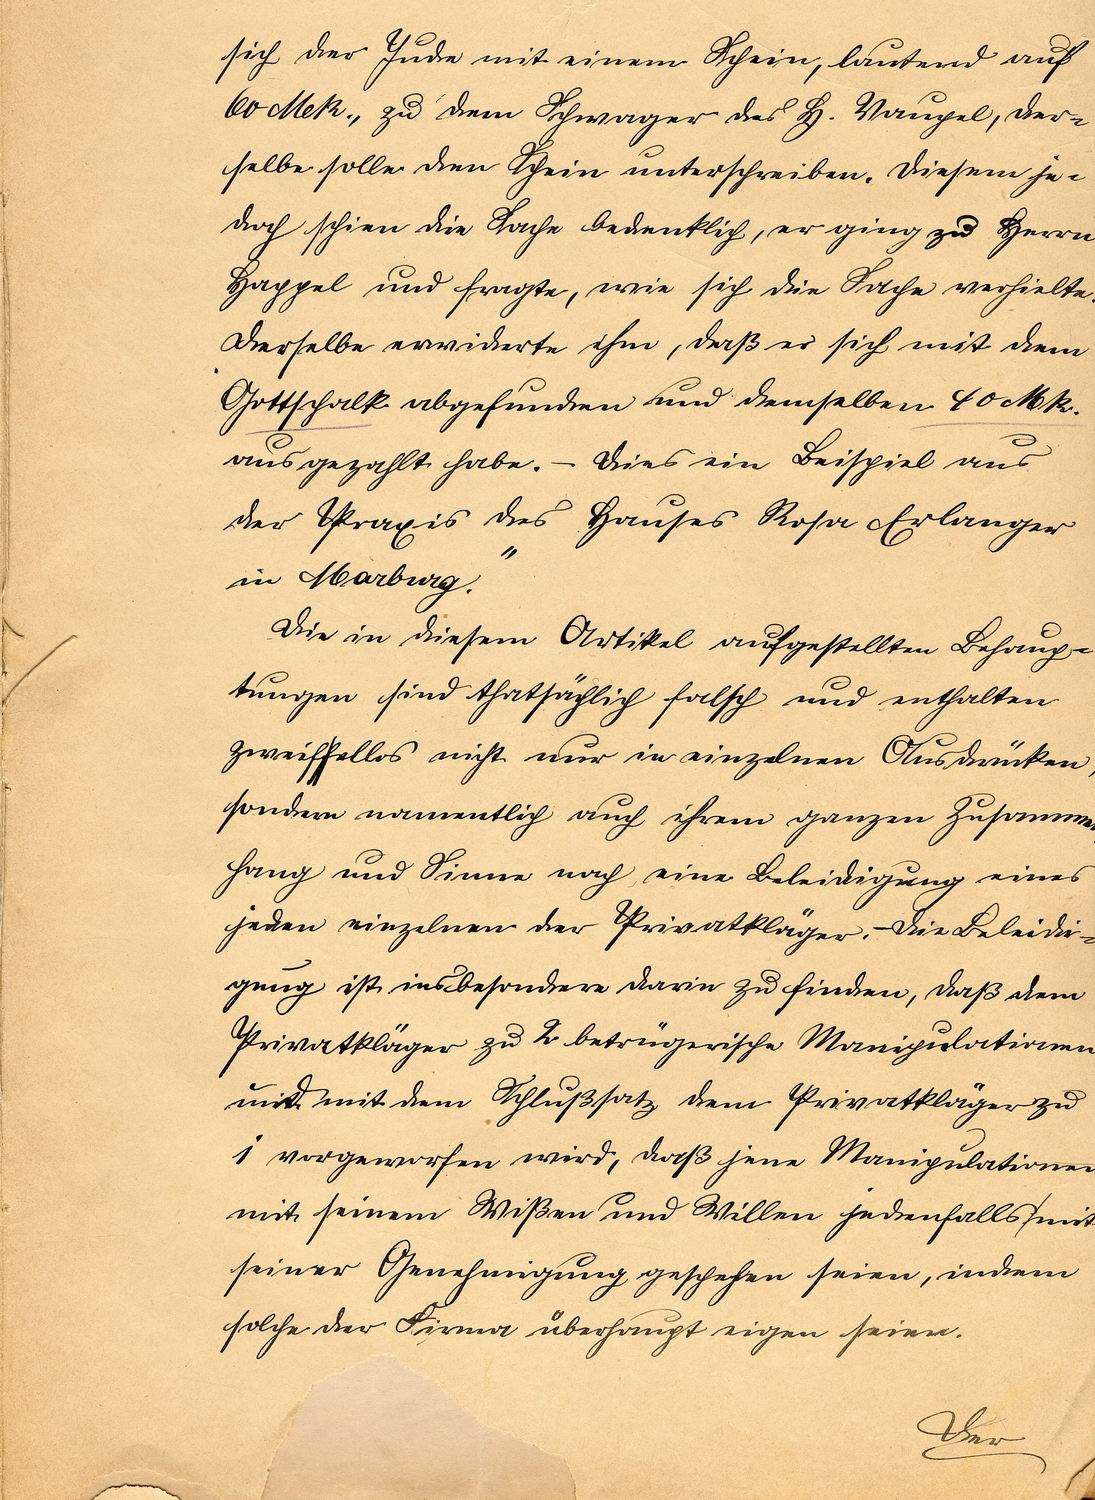 sich der Jude mit einem Schein, lautend auf
60 Mk., zu dem Schwager des H. Vaupel, der-
selbe solle den Schein unterschreiben. Diesem je-
doch schien die Sache bedenklich, er ging zu Herrn
Happel und fragte, wie sich die Sache verhielte.
Derselbe erwiderte ihm, daß er sich mit dem
Gottschalk abgefunden und demselben 40 Mk.
ausgezahlt habe. – Dies ein Beispiel aus
der Praxis des Hauses Rosa Erlanger
in Marburg."
Die in diesem Artikel aufgestellten Behaup-
tungen sind thatsächlich falsch und enthalten
zweiffellos nicht nur in einzelnen Ausdrücken,
sondern namentlich auch ihrem ganzen Zusammen
hang und Sinne nach eine Beleidigung eines
jeden einzelnen der Privatkläger. – Die Beleidi-
gung ist insbesondere darin zu finden, daß dem
Privatkläger zu 2 betrügerische Manipulationen
und mit dem Schlußsatz dem Privatkläger zu
1 vorgeworfen wird, daß jene Manipulationen
mit seinem Wißen und Willen jedenfalls mit
seiner Genehmigung geschehen seien, indem
solche der Firma überhaupt eigen seien.
Der